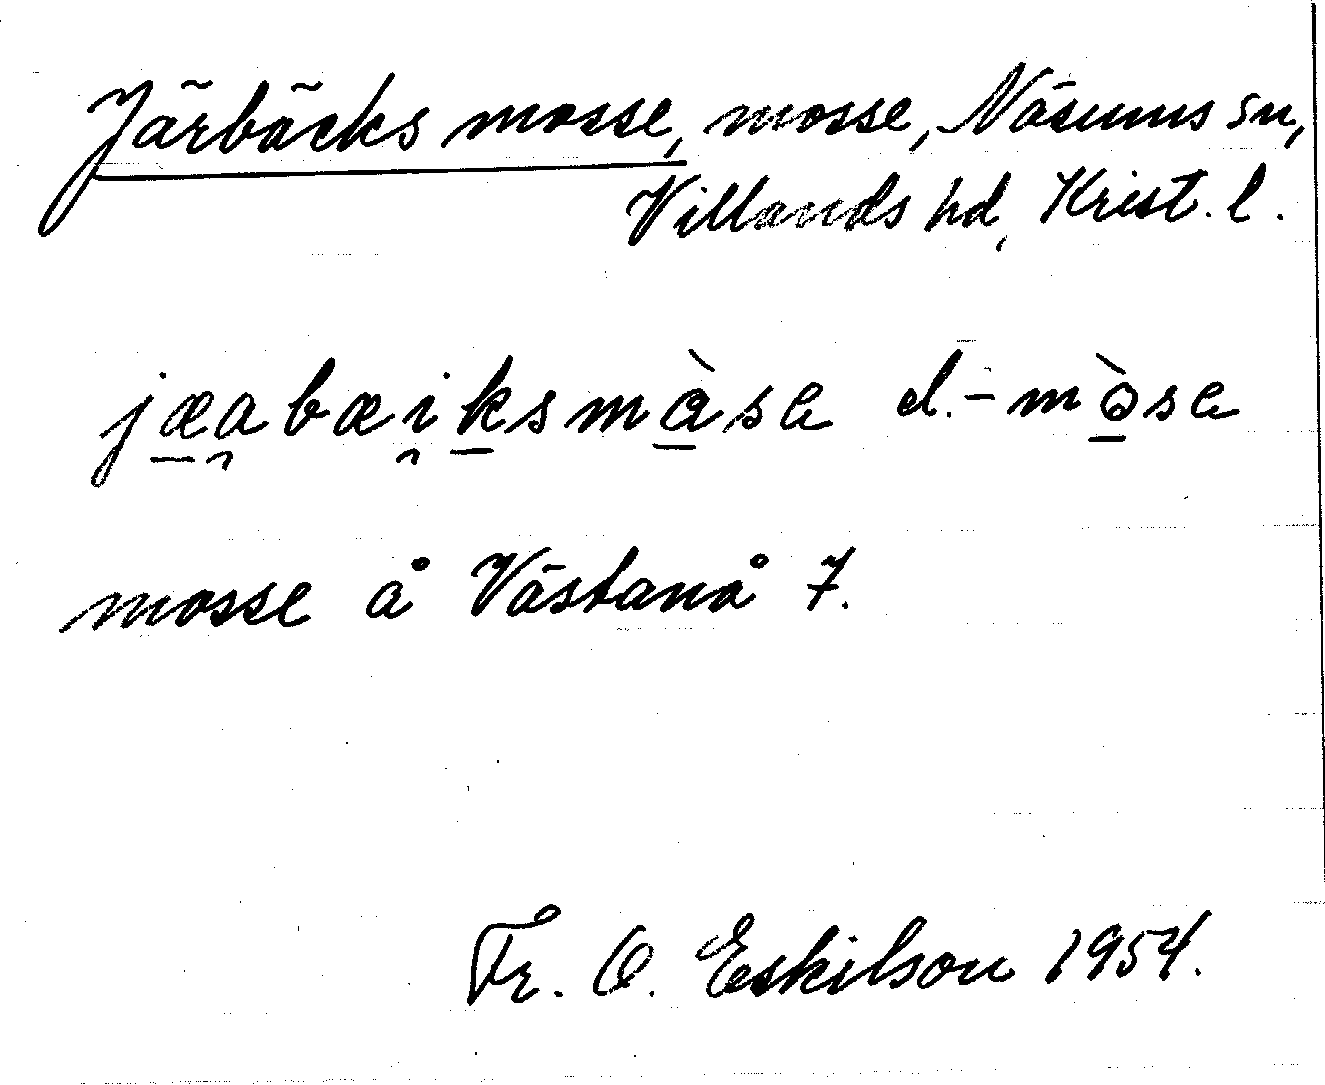 Järbäcks mosse, mosse, Näsums sn,
Villands hd, Krist. l.
jæ̱a̯bæi̯ḵsmà̱se el. - mò̱se
mosse å Västanå 7.
Fr. O. Eskilson 1954.